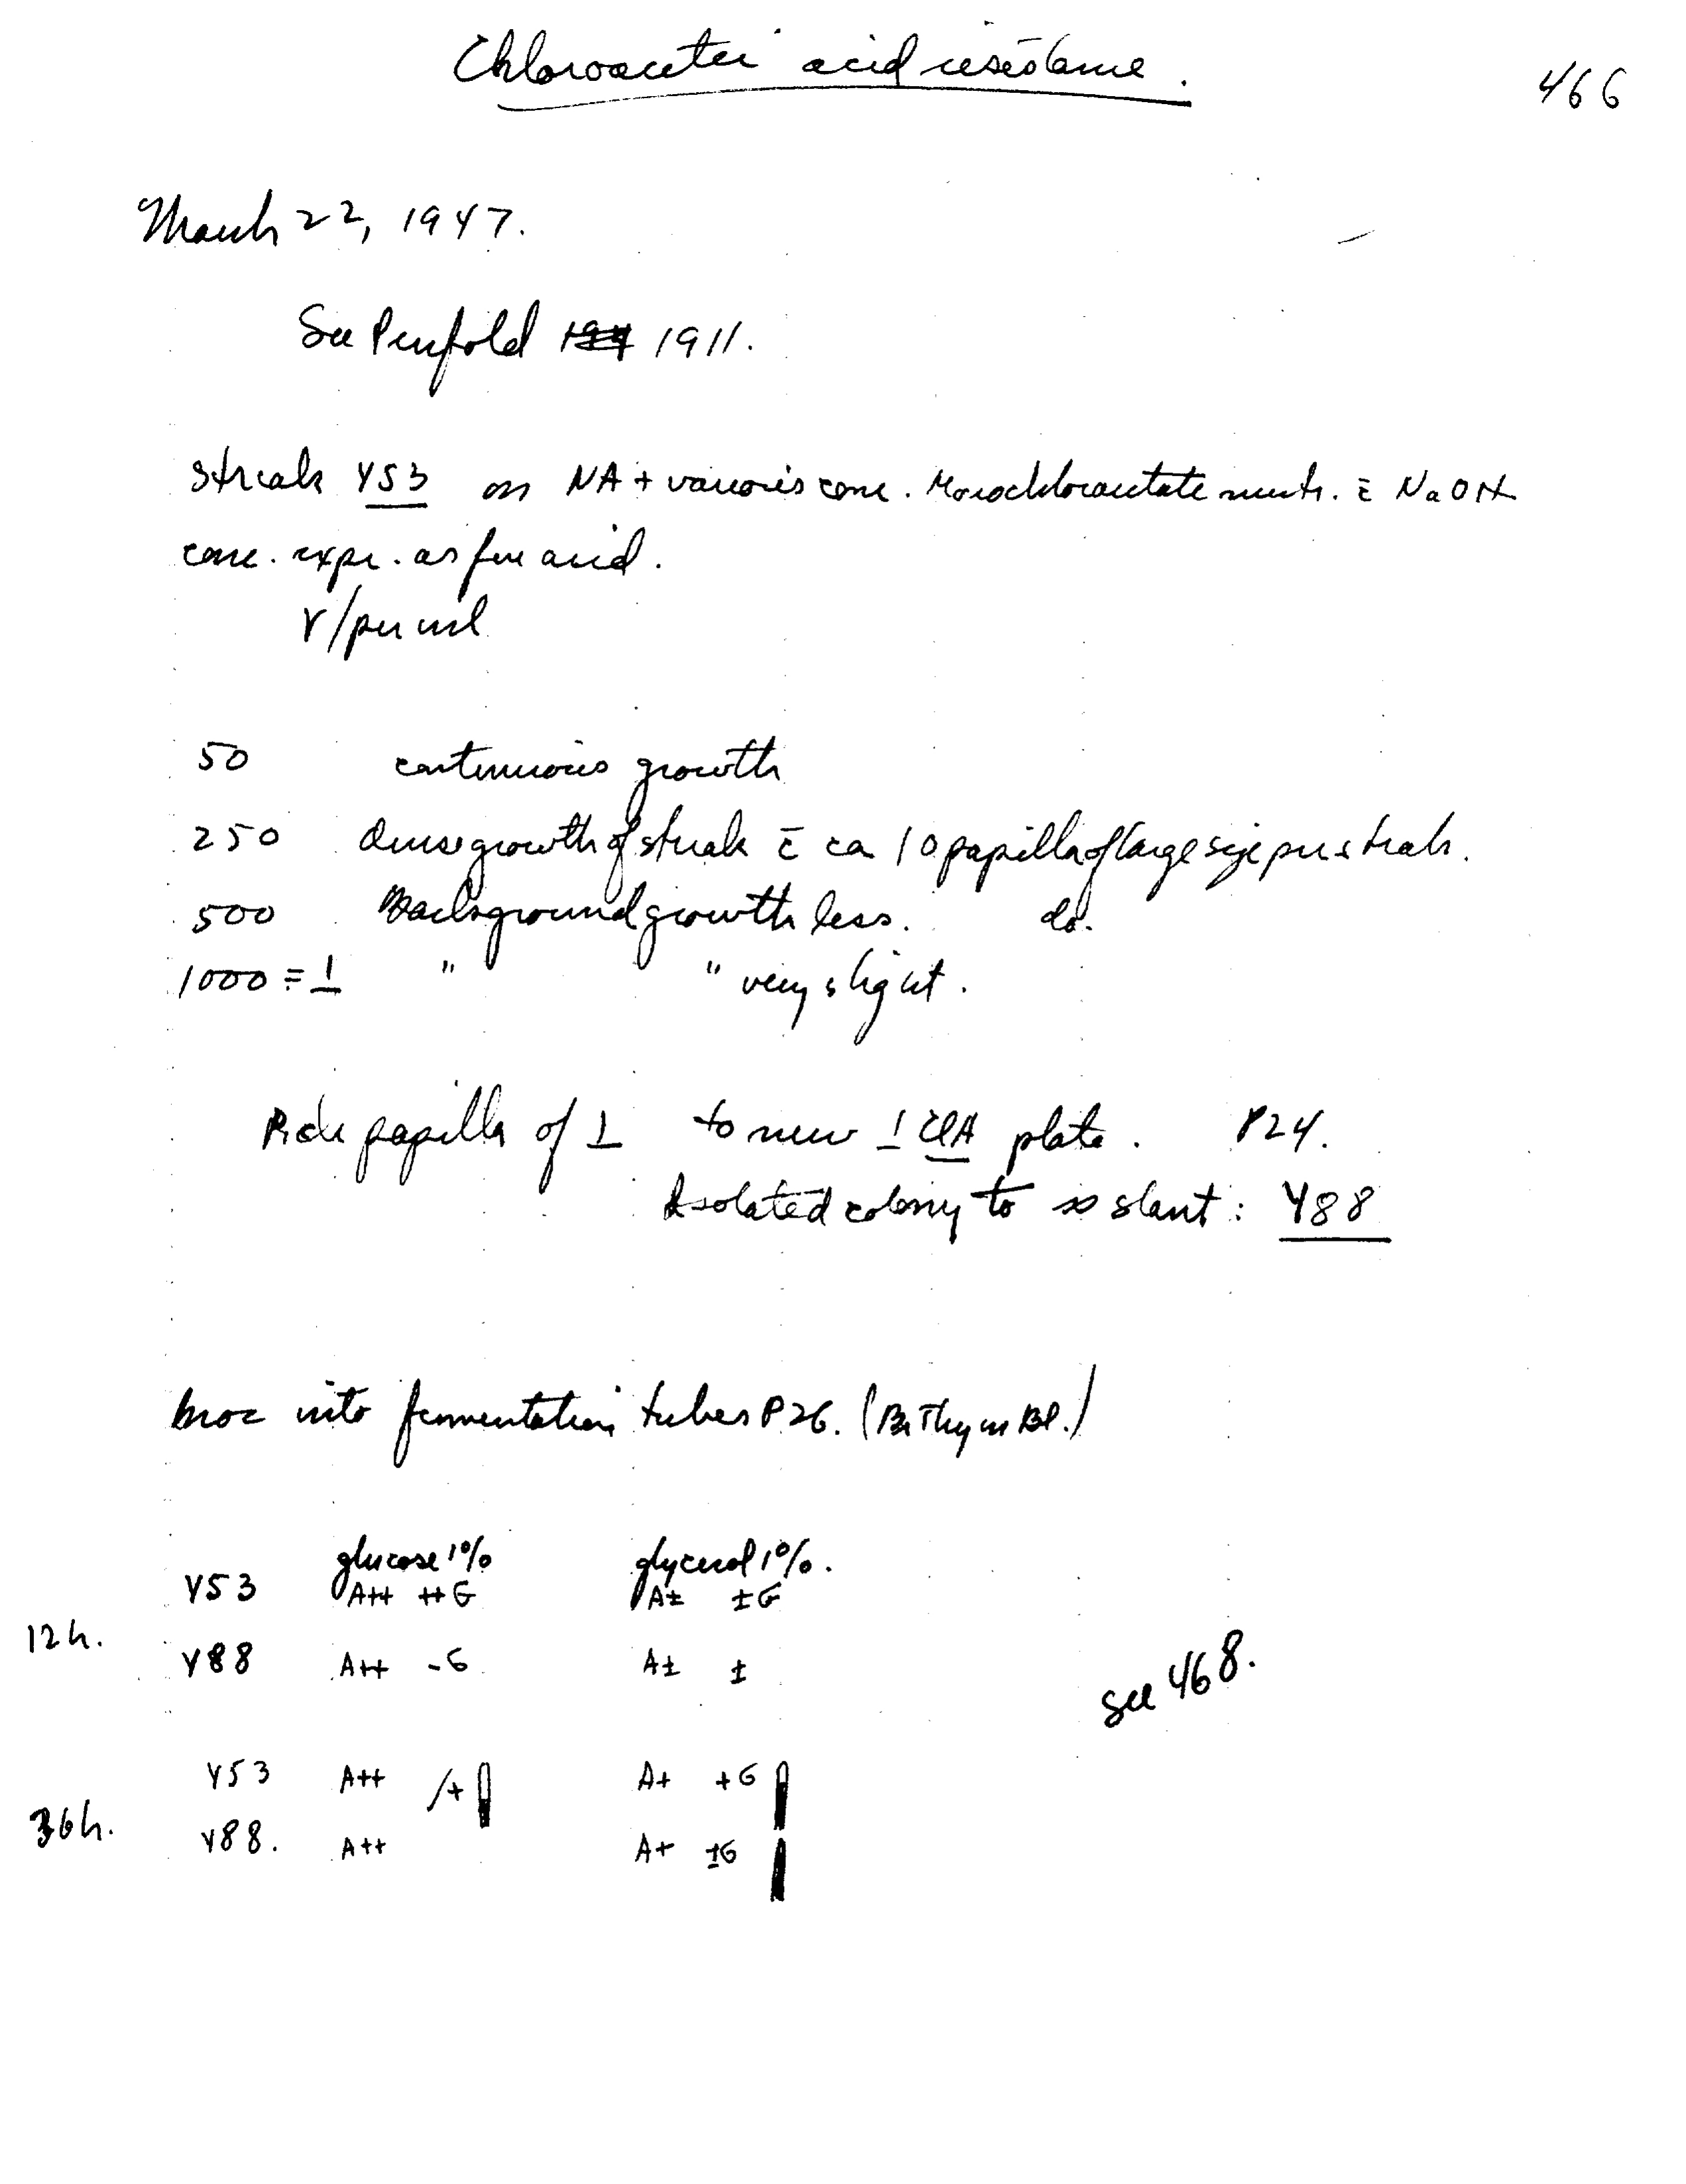 Chloroacetic acid resistance.
466
March 22, 1947.
See Penfold 1911.
Streak Y53 on NA + various conc. Monochloroacetate neutr. c̄ NaOH
conc. expr. as free acid.
γ/per ml
50 continuous growth
250 dense growth of streak c̄ ca 10 papilla of large size per streak.
500 Background growth less. do.
1000 = 1 " " very slight.
Pick papilla of 1 to new 1 ClA plate. P24.
Isolated colony to slant: Y88
Inoc into fermentation tubes P26. (BrThym Bl.)
glucose 1% glycerol 1%.
Y53 A++ ++G A± ±G
12h.
Y88 A++ -G A± ±
see 468.
Y53 A++ /+ A+ +G
36h.
Y88. A++ A+ ±G